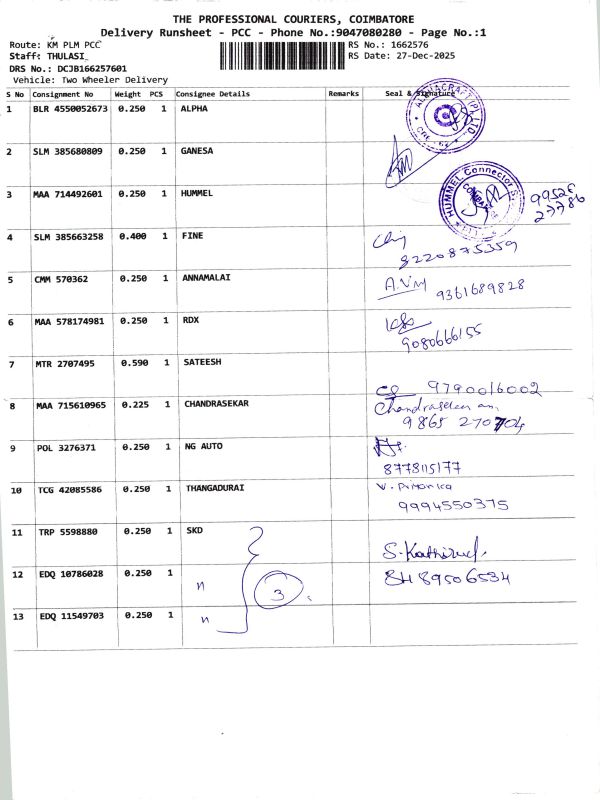 THE PROFESSIONAL COURIERS, COIMBATORE
Delivery Runsheet - PCC - Phone No.:9047080280 - Page No.:1
Route: KM PLM PCC RS No.: 1662576
Staff: THULASI RS Date: 27-Dec-2025
DRS No.: DCJB166257601
Vehicle: Two Wheeler Delivery
S No Consignment No Weight PCS Consignee Details Remarks Seal & Signature
1 BLR 4550052673 0.250 1 ALPHA
2 SLM 385680809 0.250 1 GANESA
3 MAA 714492601 0.250 1 HUMMEL HUMMEL Connector S. 99526
27786
4 SLM 385663258 0.400 1 FINE
8220875359
5 CMM 570362 0.250 1 ANNAMALAI A.VM 9361689828
6 MAA 578174981 0.250 1 RDX
9080666155
7 MTR 2707495 0.590 1 SATEESH
9790016002
8 MAA 715610965 0.225 1 CHANDRASEKAR
9865 270704
9 POL 3276371 0.250 1 NG AUTO
8778115177
10 TCG 42085586 0.250 1 THANGADURAI
9994550375
11 TRP 5598880 0.250 1 SKD
12 EDQ 10786028 0.250 1 " 3
8489506534
13 EDQ 11549703 0.250 1 "